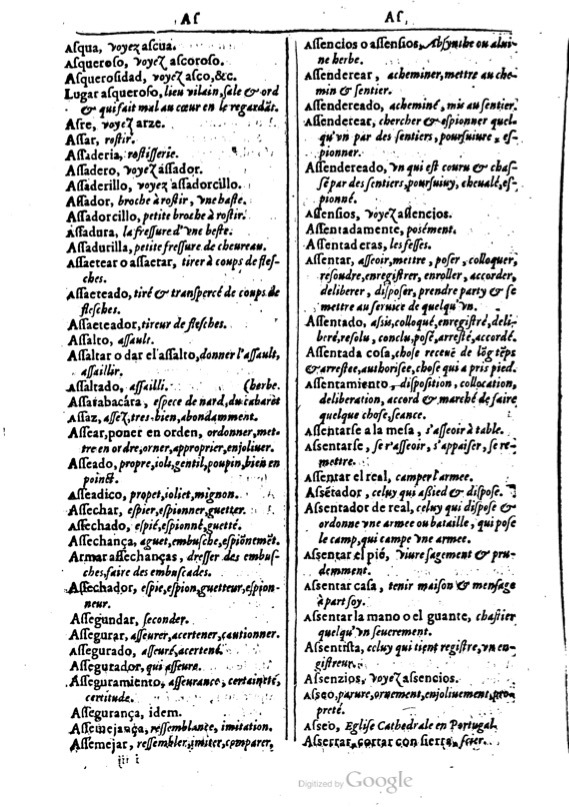 Aſ
Aſ
Aſqua, voyez aſcua.
Aſqueroſo, voyez aſcoroſo.
Aſqueroſidad, voyez aſco, &c.
Lugar aſqueroſo, lieu vilain, ſale & ord
& qui fait mal au cœur en le regardāt.
Aſre, voyez arze.
Aſſar, roſtir.
Aſſaderia, roſtiſſerie.
Aſſadero, voyez aſſador.
Aſſaderillo, voyez aſſadorcillo.
Aſſador, broche à roſtir, vne haſte.
Aſſadorcillo, petite broche à roſtir.
Aſſadura, la freſſure d'vne beſte.
Aſſadurilla, petite freſſure de cheureau.
Aſſaetear o aſſaetar, tirer à coups de fleſ-
ches.
Aſſaeteado, tiré & tranſpercé de coups de
fleſches.
Aſſaeteador, tireur de fleſches.
Aſſalto, aſſault.
Aſſaltar o dar el aſſalto, donner l'aſſault,
aſſaillir.
Aſſaltado, aſſailli. (herbe.
Aſſarabacára, eſpece de nard, du cabaret
Aſſaz, aſſez, tres-bien, abondamment.
Aſſear, poner en orden, ordonner, met-
tre en ordre, orner, approprier, enjoliuer.
Aſſeado, propre, ioli, gentil, poupin, bien en
poinct.
Aſſeadico, propet, ioliet, mignon.
Aſſechar, eſpier, eſpionner, guetter.
Aſſechado, eſpié, eſpionné, guetté.
Aſſechança, aguet, embuſche, eſpiōnemēt.
Armar aſſechanças, dreſſer des embuſ-
ches, faire des embuſcades.
Aſſechador, eſpie, eſpion, guetteur, eſpion-
neur.
Aſſegundar, ſeconder.
Aſſegurar, aſſeurer, acertener, cautionner.
Aſſegurado, aſſeuré, acertené.
Aſſegurador, qui aſſeure.
Aſſeguramiento, aſſeurance, certaineté,
certitude.
Aſſegurança, idem.
Aſſemejança, reſſemblance, imitation.
Aſſemejar, reſſembler, imiter, comparer,
iii i
Aſſencios o aſſenſios, Abſynthe ou alui-
ne herbe.
Aſſenderear, acheminer, mettre au che-
min & ſentier.
Aſſendereado, acheminé, mis au ſentier.
Aſſenderear, chercher & eſpionner quel-
qu'vn par des ſentiers, pourſuiure, eſ-
pionner.
Aſſendereado, vn qui eſt couru & chaſ-
ſé par des ſentiers, pourſuiuy, cheualé, eſ-
pionné.
Aſſenſios, voyez aſſencios.
Aſſentadamente, poſément.
Aſſentaderas, les feſſes.
Aſſentar, aſſeoir, mettre, poſer, colloquer,
reſoudre, enregiſtrer, enroller, accorder,
deliberer, diſpoſer, prendre party & ſe
mettre au ſeruice de quelqu'vn.
Aſſentado, aſsis, colloqué, enregiſtré, deli-
beré, reſolu, conclu, poſé, arreſté, accordé.
Aſſentada coſa, choſe receuë de lōg tēps
& arreſtee, authoriſee, choſe qui a pris pied.
Aſſentamiento, diſpoſition, collocation,
deliberation, accord & marché de faire
quelque choſe, ſeance.
Aſſentarſe a la meſa, s'aſſeoir à table.
Aſſentarſe, ſe r'aſſeoir, s'appaiſer, ſe re-
mettre.
Aſſentar el real, camper l'armee.
Aſsētador, celuy qui aſsied & diſpoſe.
Aſſentador de real, celuy qui diſpoſe &
ordonne vne armee ou bataille, qui poſe
le camp, qui campe vne armee.
Aſſentar el pié, viure ſagement & pru-
demment.
Aſſentar caſa, tenir maiſon & meſnage
à part ſoy.
Aſſentar la mano o el guante, chaſtier
quelqu'vn ſeuerement.
Aſſentiſta, celuy qui tient regiſtre, vn en-
giſtreur.
Aſſenzios, voyez aſſencios.
Aſſeo, parure, ornement, enjoliuement, pro-
preté.
Aſſeo, Egliſe Cathedrale en Portugal.
Aſſerrar, cortar con ſierra, ſcier.
Digitized by Google